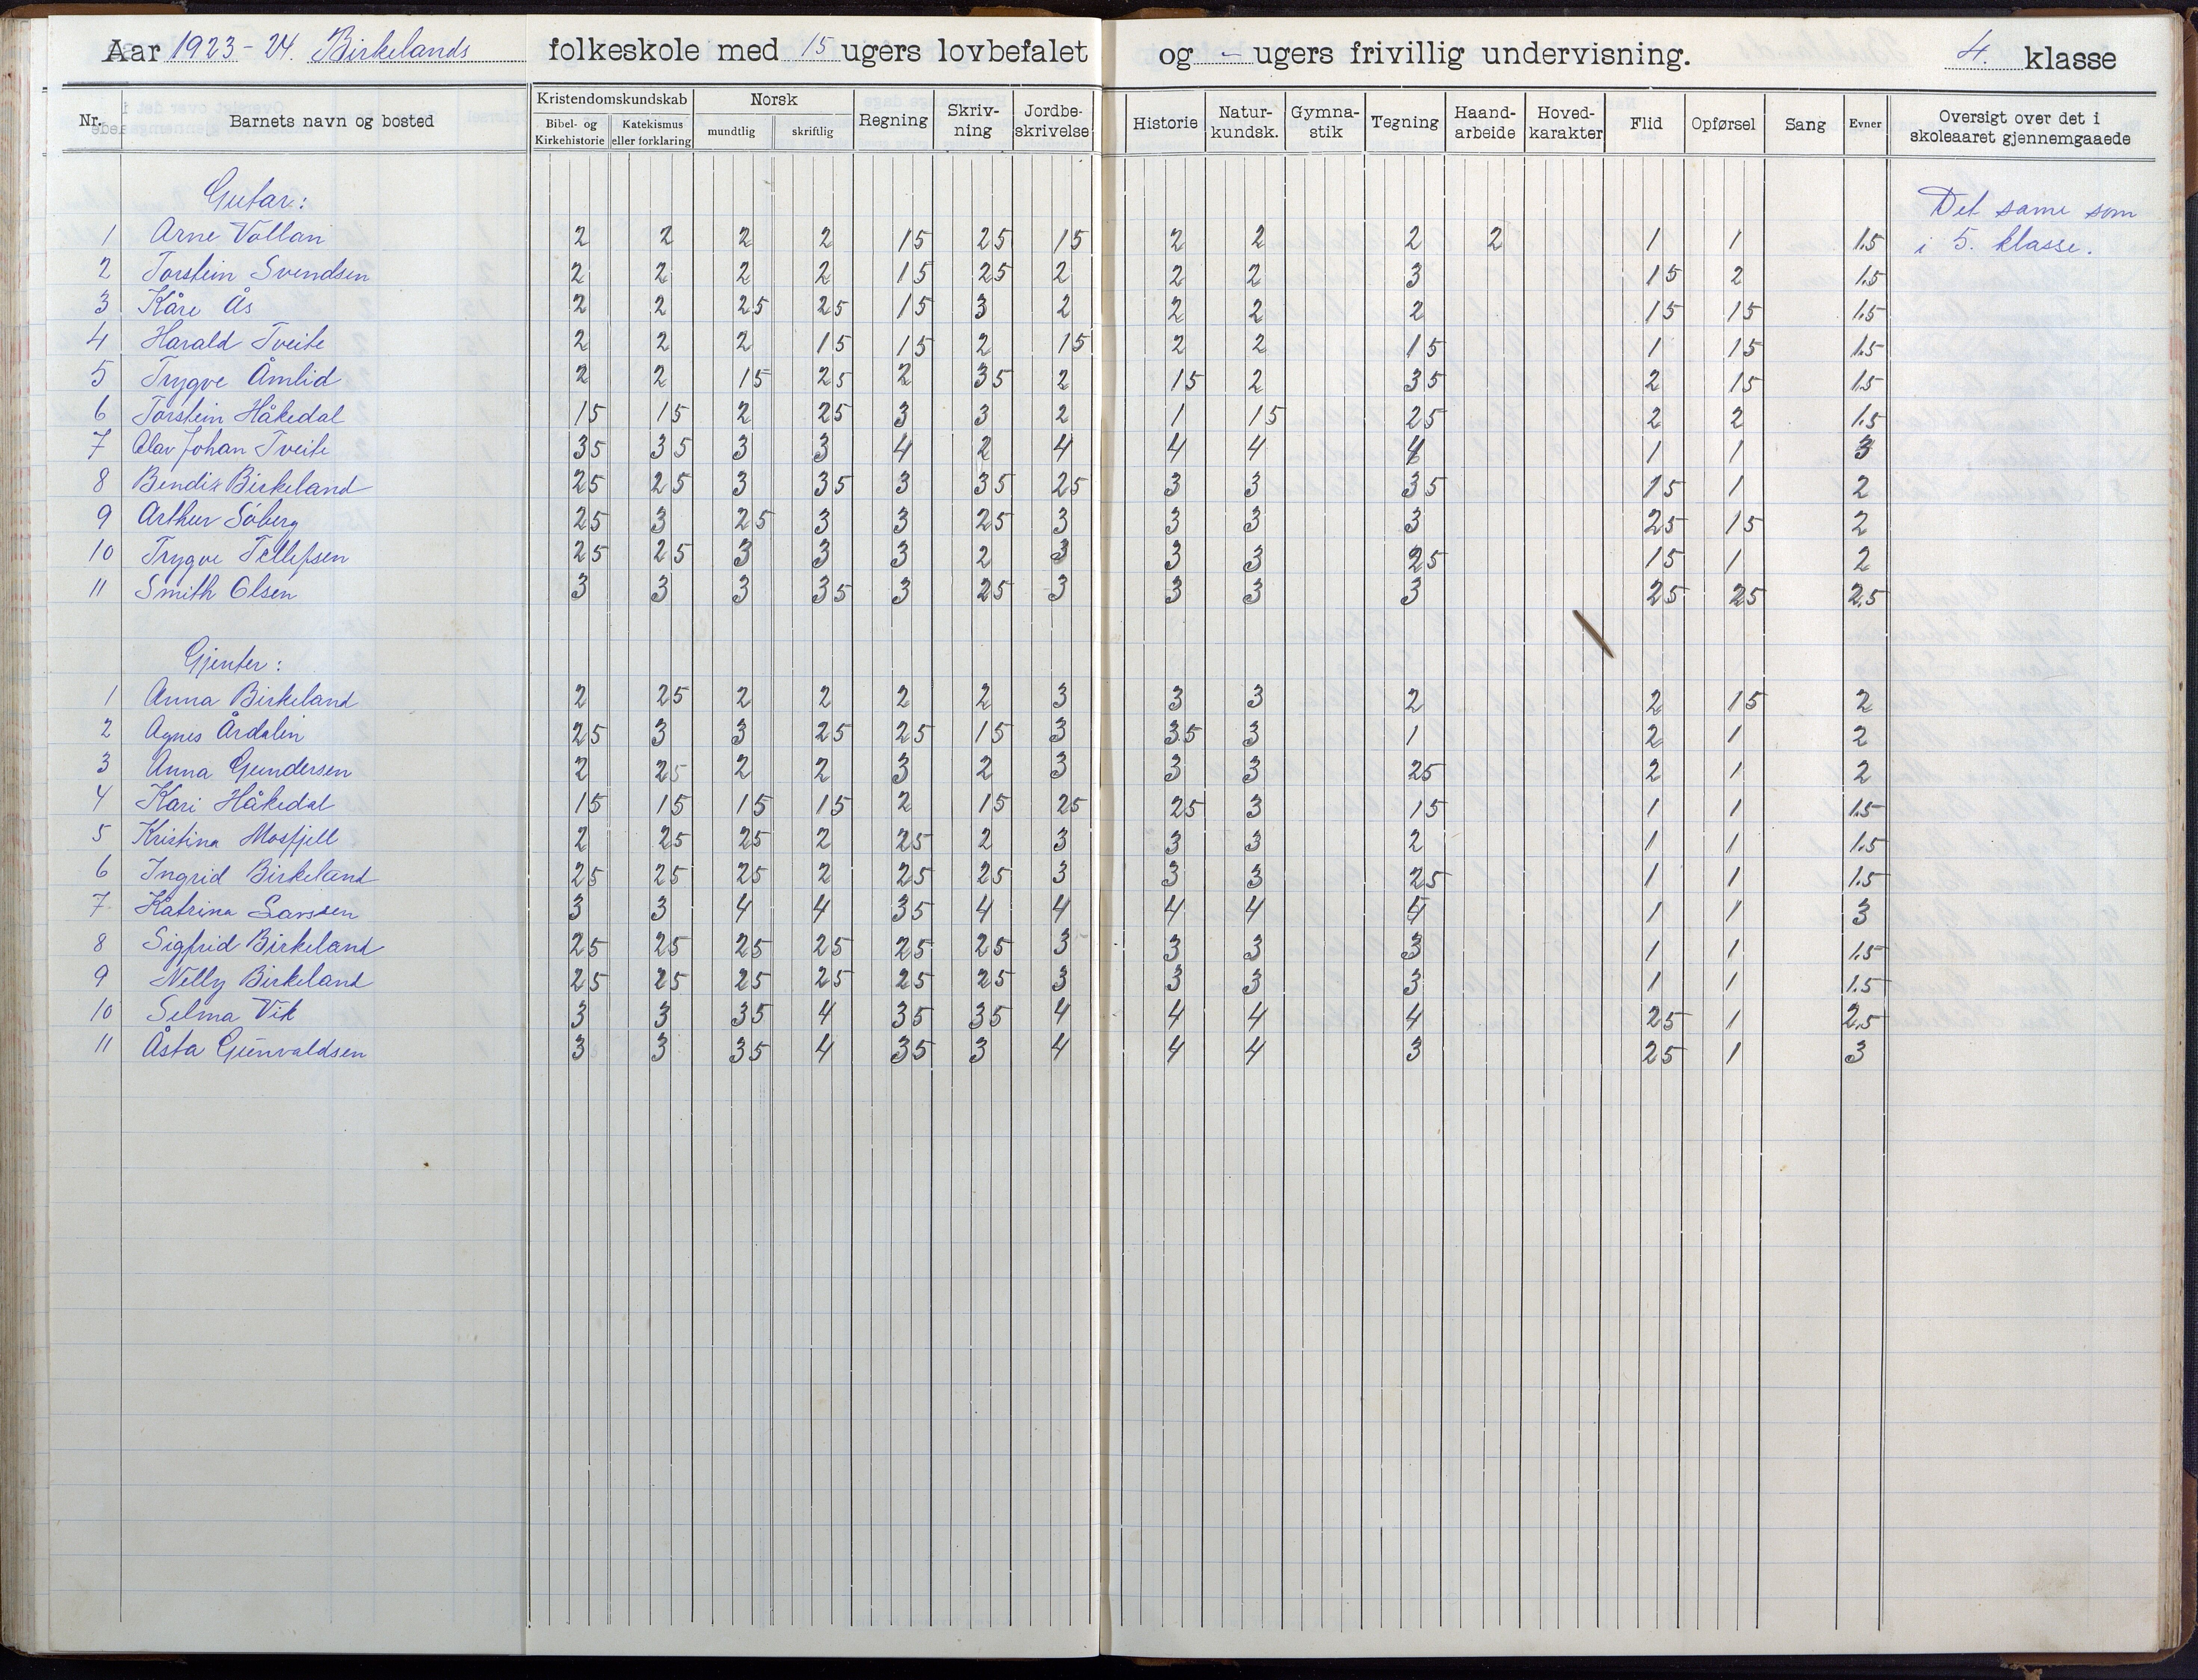 Aar 1923-24. Birkelands folkeskole med 15 ugers lovbefalet og - ugers frivillig undervisning. 4. klasse
Nr. Barnets navn og bosted Kristendomskundskab Bibel- og Kirkehistorie Katekismus eller forklaring Norsk mundtlig skriftlig Regning Skriv-ning Jordbe-skrivelse Historie Natur-kundsk. Gymna-stik Tegning Haand-arbeide Hoved-karakter Flid Opførsel Sang Evner Oversigt over det i skoleaaret gjennemgaaede
Gutar:
Det same som
1 Arne Vollan 2 2 2 2 15 25 15 2 2 2 2 1 1 1.5 i 5. klasse.
2 Torstein Svendsen 2 2 2 2 15 25 2 2 2 3 15 2 1.5
3 Kåre Ås 2 2 25 25 15 3 2 2 2 2 15 15 1.5
4 Harald Tveite 2 2 2 15 15 2 15 2 2 15 1 15 1.5
5 Trygve Åmlid 2 2 15 25 2 35 2 15 2 35 2 15 1.5
6 Torstein Håkedal 15 15 2 25 3 3 2 1 15 25 2 2 1.5
7 Olav Johan Tveite 35 35 3 3 4 2 4 4 4 4 1 1 3
8 Bendix Birkeland 25 25 3 35 3 35 25 3 3 35 15 1 2
9 Arthur Söberg 25 3 25 3 3 25 3 3 3 3 25 15 2
10 Trygve Tellefsen 25 25 3 3 3 2 3 3 3 25 15 1 2
11 Smith Olsen 3 3 3 35 3 25 3 3 3 3 25 25 2.5
Gjenter:
1 Anna Birkeland 2 25 2 2 2 2 3 3 3 2 2 15 2
2 Agnes Årdalin 25 3 3 25 25 15 3 35 3 1 2 1 2
3 Anna Gundersen 2 25 2 2 3 2 3 3 3 25 2 1 2
4 Kari Håkedal 15 15 15 15 2 15 25 25 3 15 1 1 1.5
5 Kristina Mosfjell 2 25 25 2 25 2 3 3 3 2 1 1 1.5
6 Ingrid Birkeland 25 25 25 2 25 25 3 3 3 25 1 1 1.5
7 Katrina Larssen 3 3 4 4 35 4 4 4 4 4 1 1 3
8 Sigfrid Birkeland 25 25 25 25 25 25 3 3 3 3 1 1 1.5
9 Nelly Birkeland 25 25 25 25 25 25 3 3 3 3 1 1 1.5
10 Selma Vik 3 3 35 4 35 35 4 4 4 4 25 1 2.5
11 Åsta Gunvaldsen 3 3 35 4 35 3 4 4 4 3 25 1 3